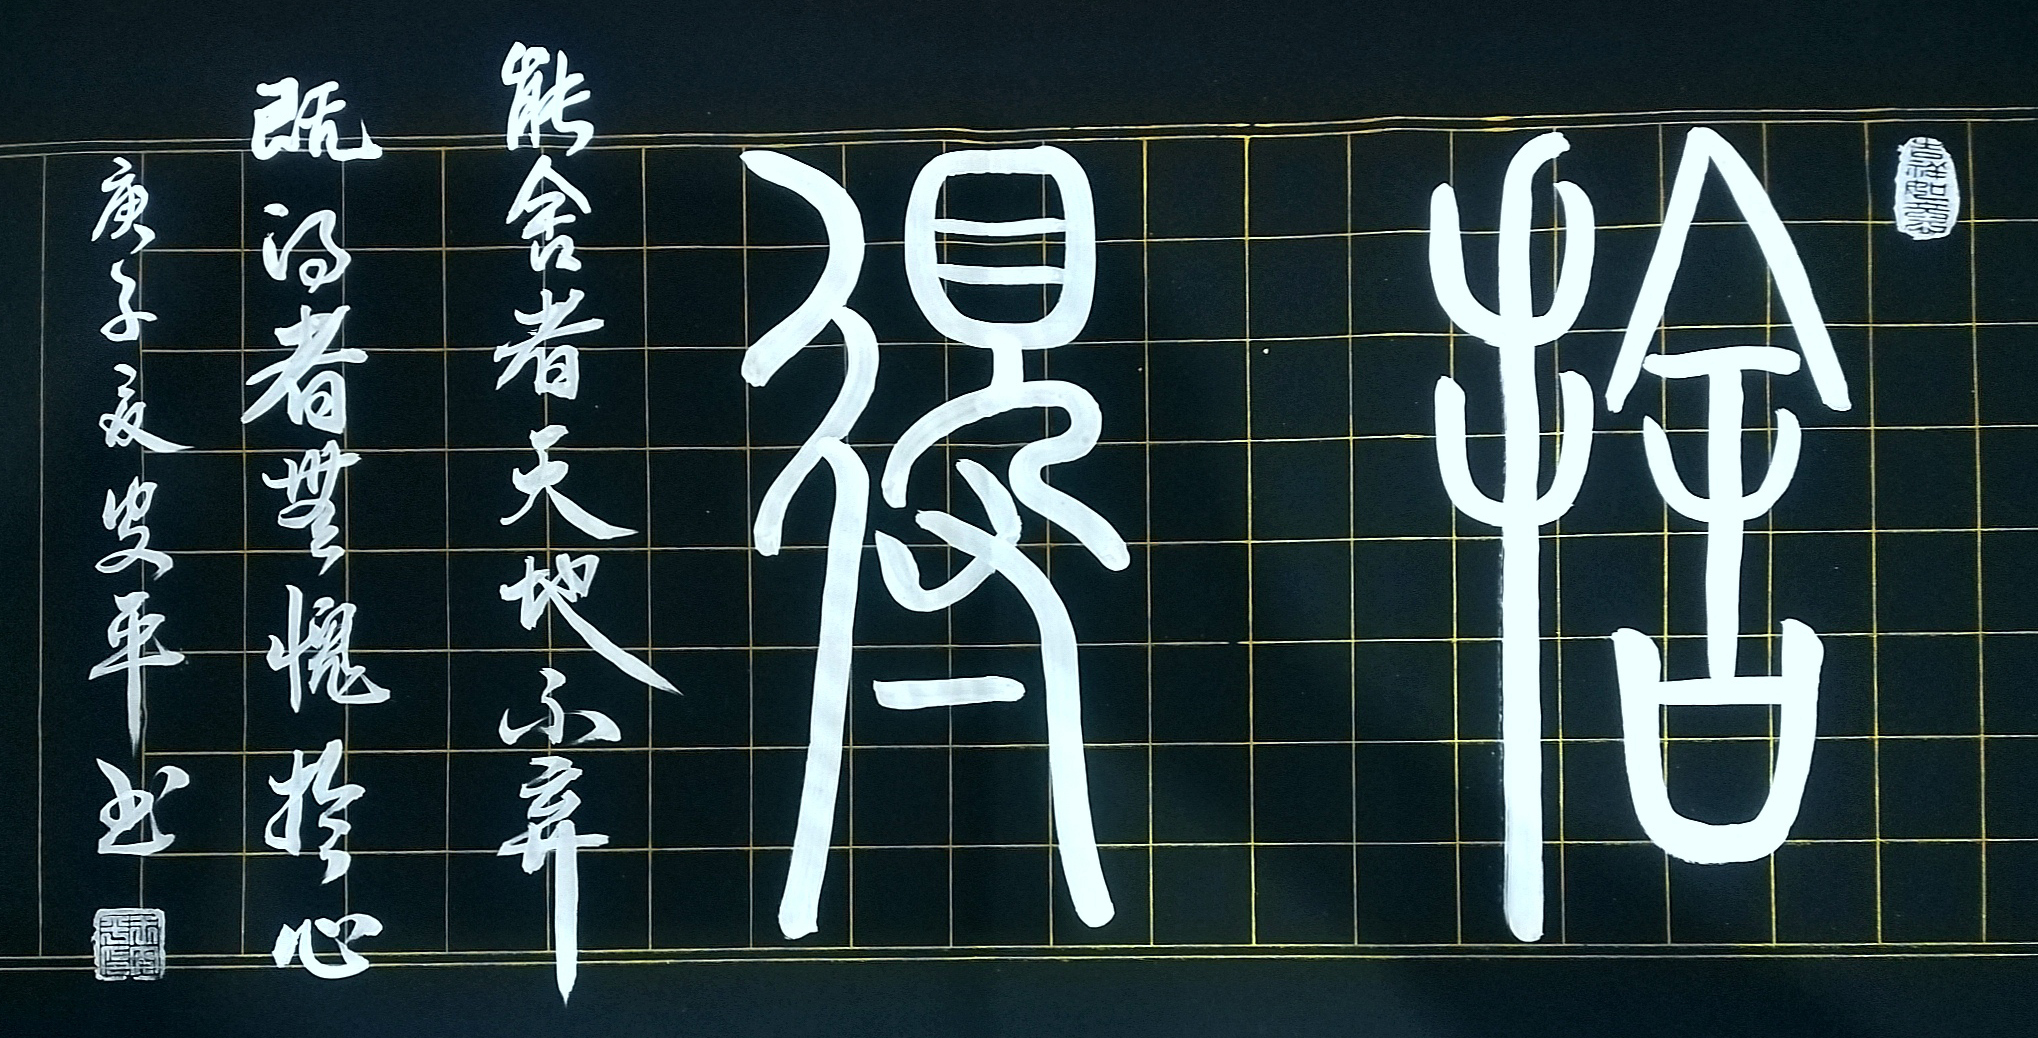 捨得
能舍者天地不弃
既得者無愧於心
庚子夏安平书